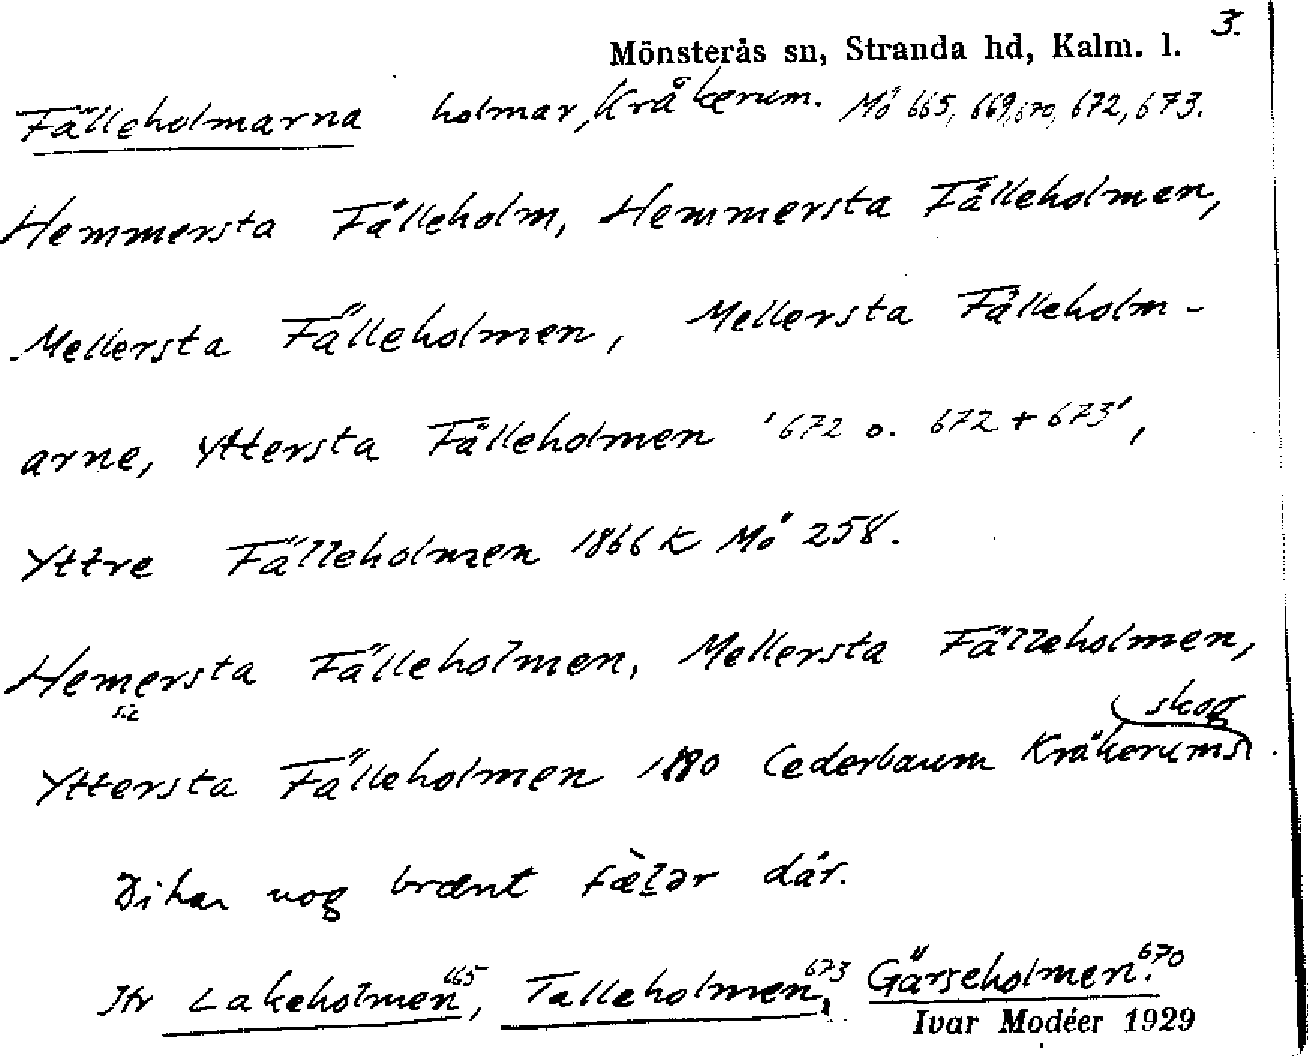 3.
Mönsterås sn, Stranda hd, Kalm. l.
Fälleholmarna holmar, Kråkerum. Mö 665, 669, 670, 672, 673.
Hemmersta Fälleholm, Hemmersta Fälleholmen,
Mellersta Fälleholmen, Mellersta Fälleholm-
arne, Yttersta Fälleholmen '672 o. 672 + 673',
Yttre Fälleholmen 1866 K Mö 258.
Hemersta Fälleholmen, Mellersta Fälleholmen,
sic skog
Yttersta Fälleholmen 1880 Cederbaum Kråkerums
Di har nog brænt fælər där.
Jfr Lakeholmen 665, Talleholmen 673, Gårseholmen 670.
Ivar Modéer 1929